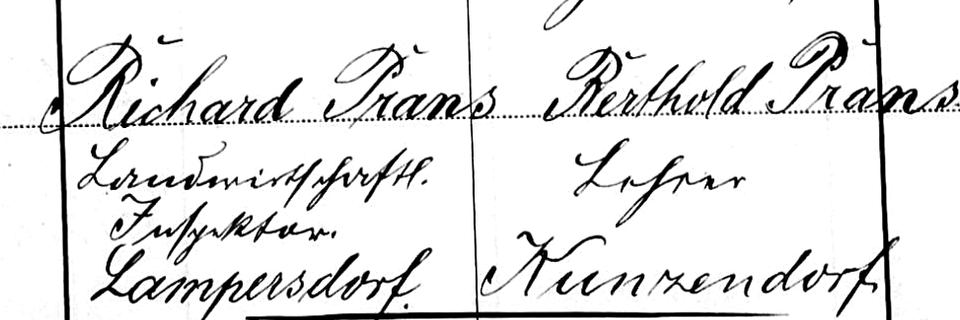 Richard Prans
Landwirtschaftl.
Inspektor.
Lampersdorf.
Berthold Prans
Lehrer
Kunzendorf